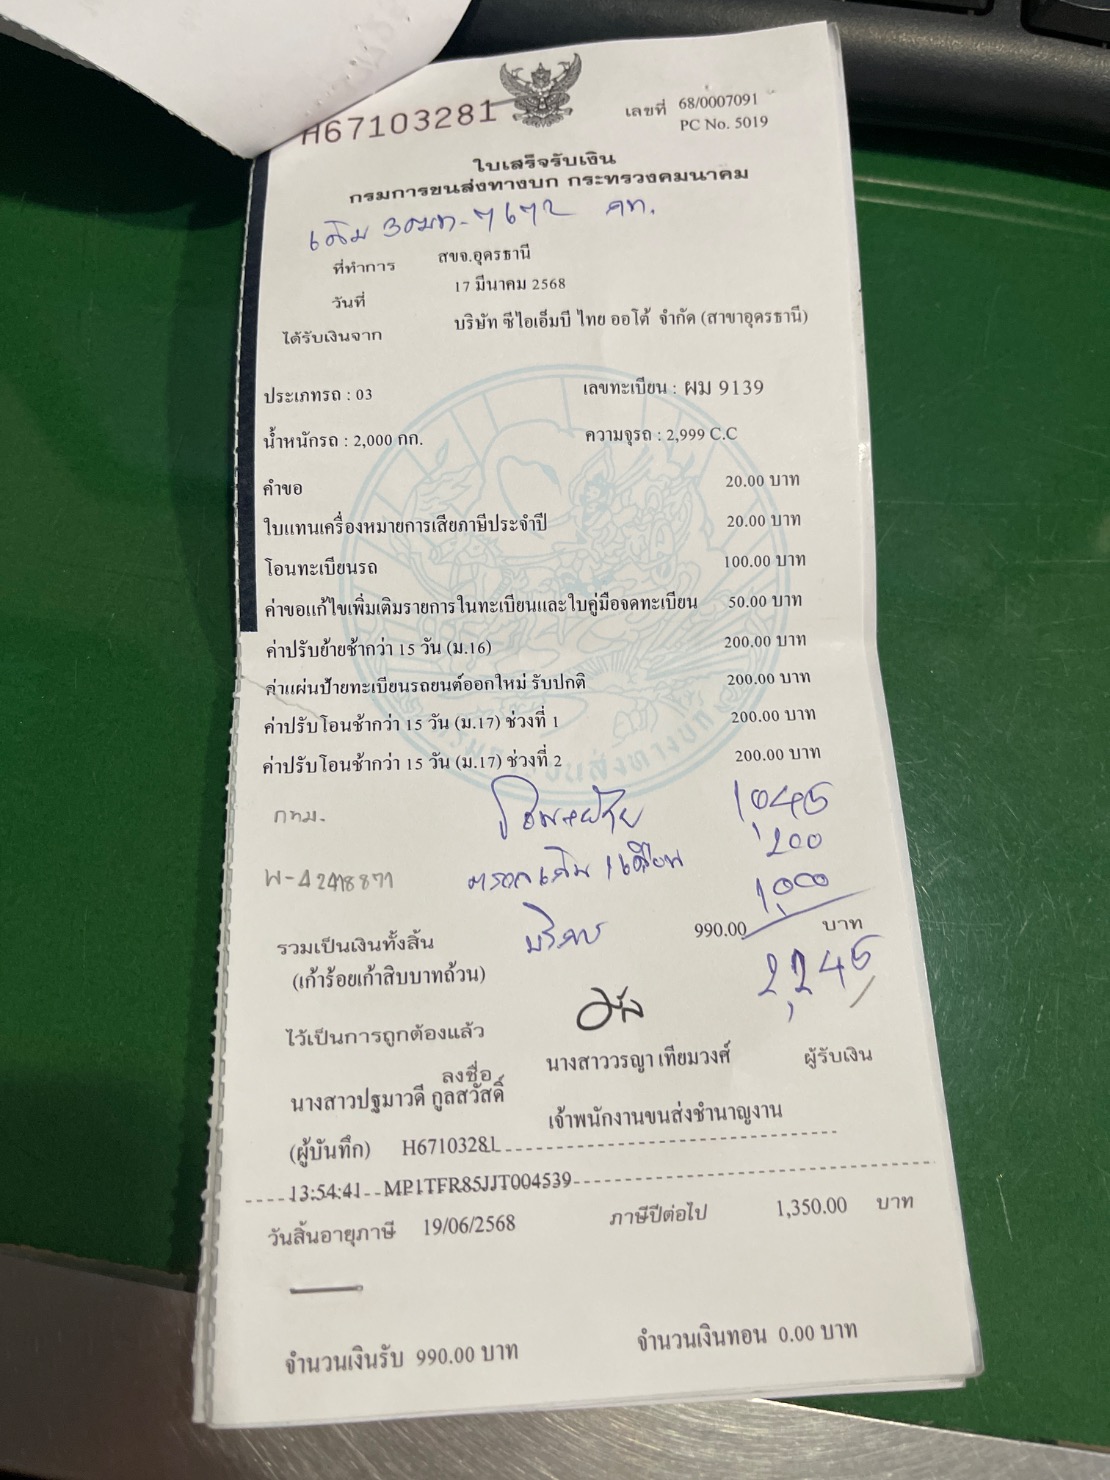 H67103281
เลขที่ 68/0007091
PC No. 5019
ใบเสร็จรับเงิน
กรมการขนส่งทางบก กระทรวงคมนาคม
เดิม
ที่ทำการ สขจ.อุดรธานี
วันที่ 17 มีนาคม 2568
ได้รับเงินจาก บริษัท ซีไอเอ็มบี ไทย ออโต้ จำกัด (สาขาอุดรธานี)
ประเภทรถ : 03 เลขทะเบียน : ผม 9139
น้ำหนักรถ : 2,000 กก. ความจุรถ : 2,999 C.C
คำขอ 20.00 บาท
ใบแทนเครื่องหมายการเสียภาษีประจำปี 20.00 บาท
โอนทะเบียนรถ 100.00 บาท
ค่าขอแก้ไขเพิ่มเติมรายการในทะเบียนและใบคู่มือจดทะเบียน 50.00 บาท
ค่าปรับย้ายช้ากว่า 15 วัน (ม.16) 200.00 บาท
ค่าแผ่นป้ายทะเบียนรถยนต์ออกใหม่ รับปกติ 200.00 บาท
ค่าปรับโอนช้ากว่า 15 วัน (ม.17) ช่วงที่ 1 200.00 บาท
ค่าปรับโอนช้ากว่า 15 วัน (ม.17) ช่วงที่ 2 200.00 บาท
กทม. 1,045
200
1,000
รวมเป็นเงินทั้งสิ้น บริการ 990.00 บาท
(เก้าร้อยเก้าสิบบาทถ้วน) 2,245
ไว้เป็นการถูกต้องแล้ว
ลงชื่อ นางสาววรญา เทียมวงศ์ ผู้รับเงิน
นางสาวปฐมาวดี กูลสวัสดิ์ เจ้าพนักงานขนส่งชำนาญงาน
(ผู้บันทึก) H67103281
13:54:41 MP1TFR85JJT004539
วันสิ้นอายุภาษี 19/06/2568 ภาษีปีต่อไป 1,350.00 บาท
จำนวนเงินรับ 990.00 บาท จำนวนเงินทอน 0.00 บาท